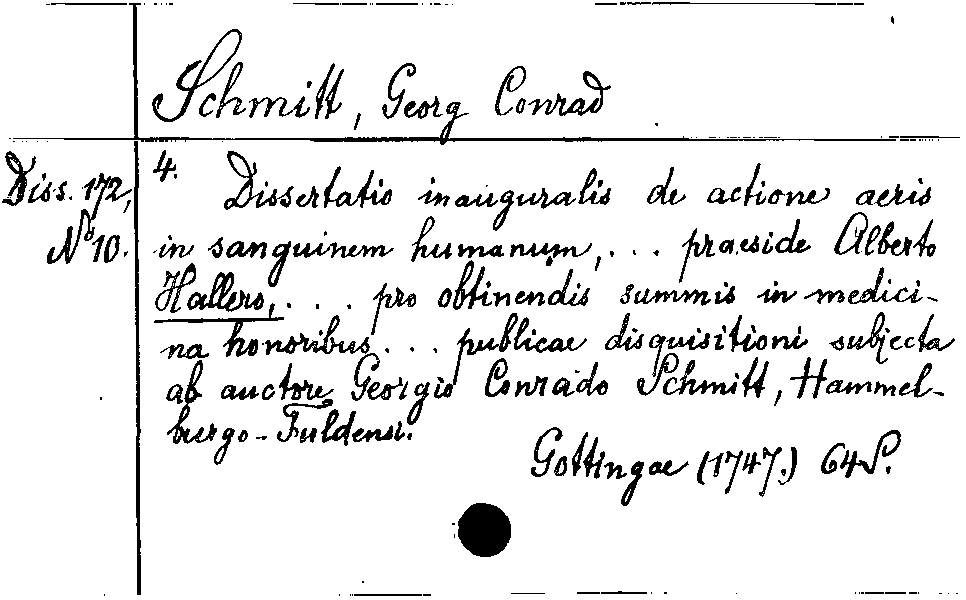 Schmitt, Georg Conrad
Diss. 172,
No 10.
4.
Dissertatio inauguralis de actione aeris
in sanguinem humanum, . . . praeside Alberto
Hallero, . . . pro obtinendis summis in medici-
na honoribus . . . publicae disquisitioni subjecta
ab auctore Georgio Conrado Schmitt, Hammel-
burgo-Fuldensi.
Gottingae (1747.) 64 S.